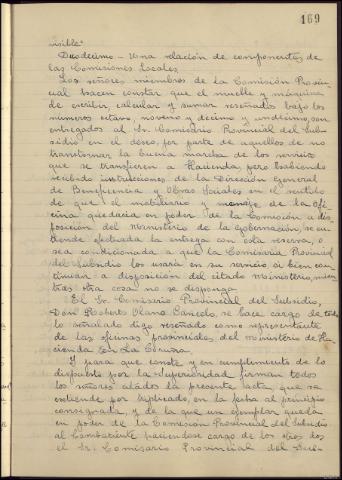 169
visible"
Duodecimo - Una relación de componentes de
las Comisiones Locales
Los señores miembros de la Comisión Provin-
cial hacen constar que el mueble y máquina
de escribir, calcular y sumar reseñados bajo los
números octavo, noveno y decimo y undécimo, son
entregados al Sr. Comisario Provincial del Sub-
sidio en el deseo, por parte de aquellos de no
transtornar la buena marcha de los servicios
que se transfieren a Hacienda, pero habiendo
recibido instrucciones de la Dirección General
de Beneficencia y Obras Sociales en el sentido
de que el mobiliario y menaje de la Ofi-
cina quedaria en poder de la Comisión a dis-
posición del Ministerio de la Gobernación, se en-
tiende efectuada la entrega con esta reserva, o
sea condicionada a que la Comisaria Provincial
del Subsidio los usará en su servicio si bien con-
tinuan a disposición del citado Ministerio, mien-
tras otra cosa no se disponga.
El Sr. Comisario Provincial del Subsidio,
Don Roberto Llano Cancelo, se hace cargo de todo
lo señalado digo reseñado como representante
de las oficinas provinciales del Ministerio de Ha-
cienda en La Coruña.
Y para que conste y en cumplimiento de lo
dispuesto por la Superioridad firman todos
los señores citados la presente acta que se
extiende por triplicado, en la fecha al principio
consignada, y de la que un ejemplar queda
en poder de la Comisión Provincial del Subsidio
al Combatiente haciendose cargo de los otros dos
el Sr. Comisario Provincial del Subsi-